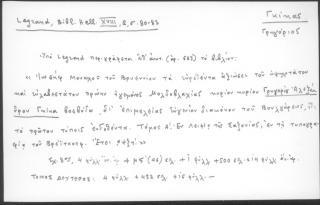 Legrand, Bibl. Hell. XVIII, 2, σ. 80-83
Γκίκας
Γρηγόριος
Ὑπὸ Legrand περιγράφεται (ἀρ. 685) τὸ βιβλίον:
« Ἰωσὴφ Μοναχοῦ τοῦ Βρυεννίου τὰ εὑρεθέντα ἀξιώσει τοῦ ὑψηλοτάτου
καὶ εὐσεβεστάτου πρώην ἡγεμόνος Μολδοβλαχίας κυρίου κυρίου Γρηγορίου Ἀλεξάν
δρου Γκίκα βοεβόδα, δι' ἐπιμελείας Εὐγενίου διακόνου τοῦ Βουλγάρεως,
τὸ πρῶτον τύποις ἐκδοθέντα. Τόμος Α'. Ἐν Λειψίᾳ τῆς Σαξονίας, ἐν τῇ τυπογρα-
φίᾳ τοῦ Βρεϊτκόπφ. Ἔτει αψξη'»
+ 500 σελ.
ΤΟΜΟΣ ΔΕΥΤΕΡΟΣ: 4 φύλλ +